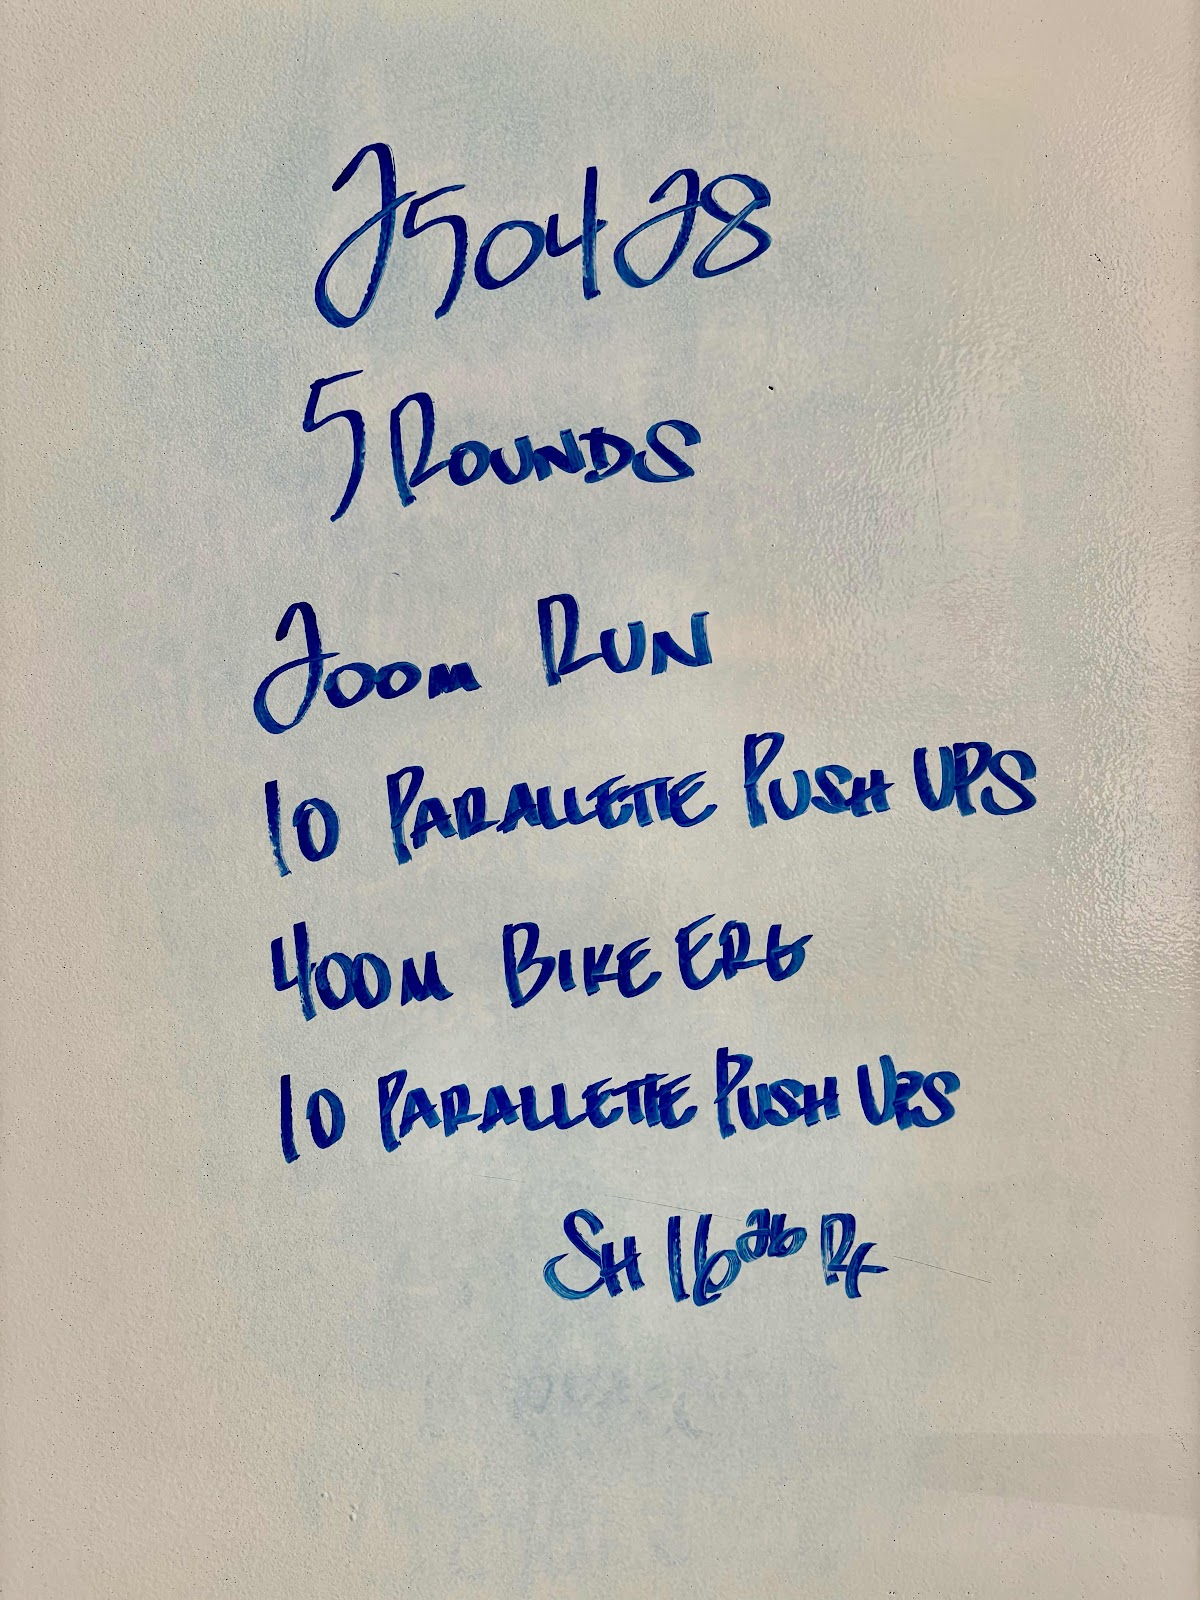 250428
5 ROUNDS
200M RUN
10 PARALLETTE PUSH UPS
400M BIKE ERG
10 PARALLETTE PUSH UPS
SH 16 26 RX